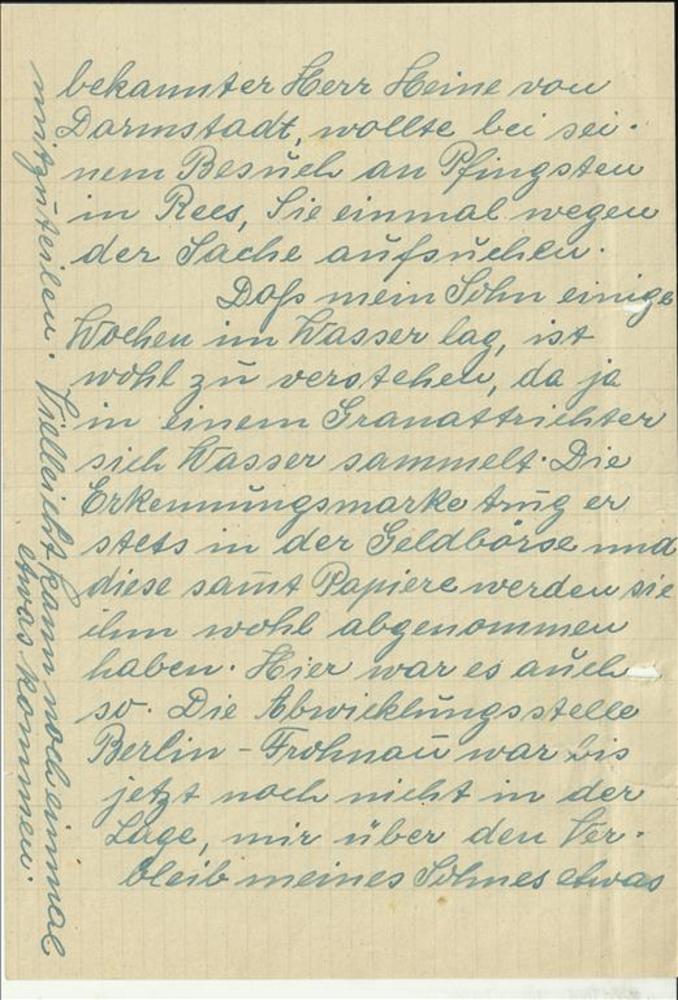 bekannter Herr Heine von
Darmstadt, wollte bei sei-
nem Besuch an Pfingsten
in Rees, Sie einmal wegen
der Sache aufsuchen.
Daß mein Sohn einige
Wochen im Wasser lag, ist
wohl zu verstehen, da ja
in einem Granattrichter
sich Wasser sammelt. Die
Erkennungsmarke trug er
stets in der Geldbörse und
diese samt Papiere werden sie
ihm wohl abgenommen
haben. Hier war es auch
so. Die Abwicklungsstelle
Berlin-Frohnau war bis
jetzt noch nicht in der
Lage, mir über den Ver-
bleib meines Sohnes etwas
mitzuteilen. Vielleicht kann noch einmal
etwas kommen.